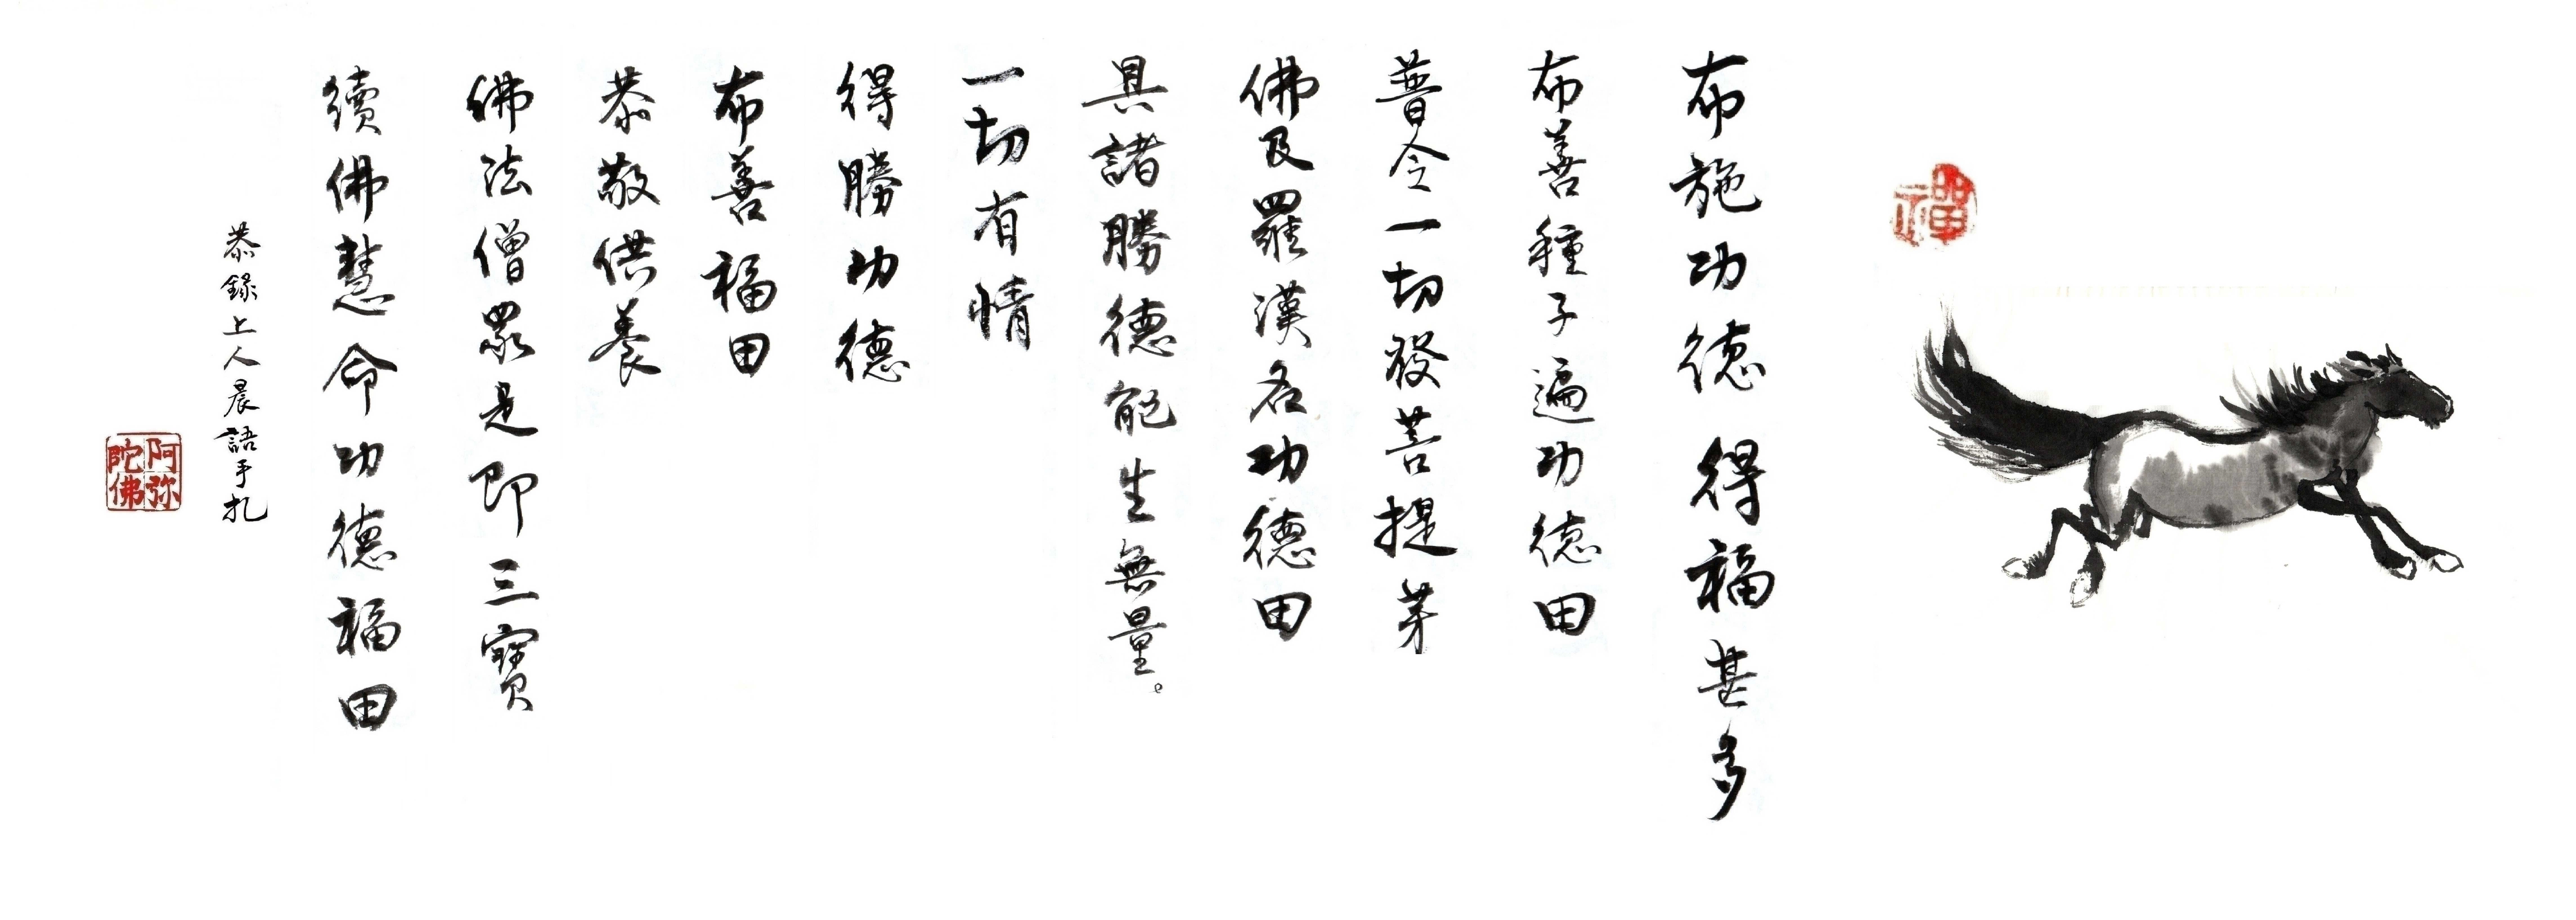 禪
布施功德得福甚多
布善種子遍功德田
普令一切發菩提芽
佛及羅漢名功德田
具諸勝德能生無量。
一切有情
得勝功德
布善福田
恭敬供養
佛法僧眾是即三寶
續佛慧命功德福田
恭錄上人晨語手扎
阿弥陀佛